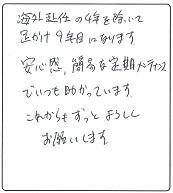 海外赴任の4年を除いて
足かけ9年目になります
安心感、簡易な定期メンテナンス
でいつも助かっています
これからもずっとよろしく
お願いします